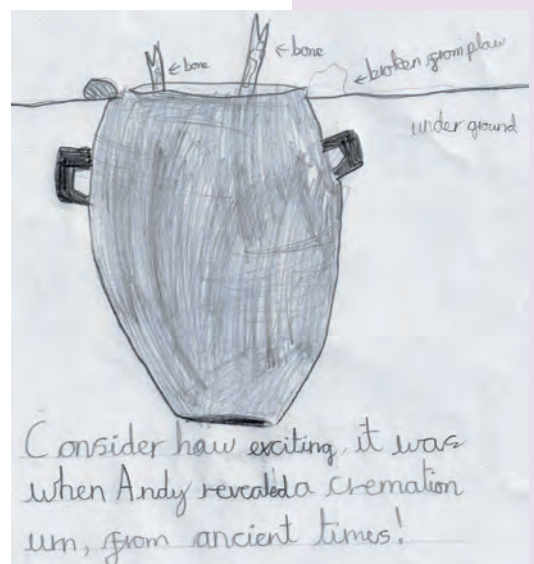 bone
bone
broken from plow
under ground
Consider haw exciting, it was
when Andy revealed a cremation
urn, from ancient times!